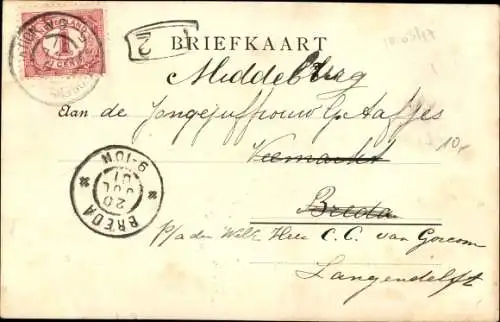 BRIEFKAART
Middelburg
Aan de Jongejuffrouw G. Aafjes
Veemarkt
Breda
p/a den Welk. Heer C. C. van Gorcom
Langendelft
BREDA
20
JUL
01
9-10N
1
10,-